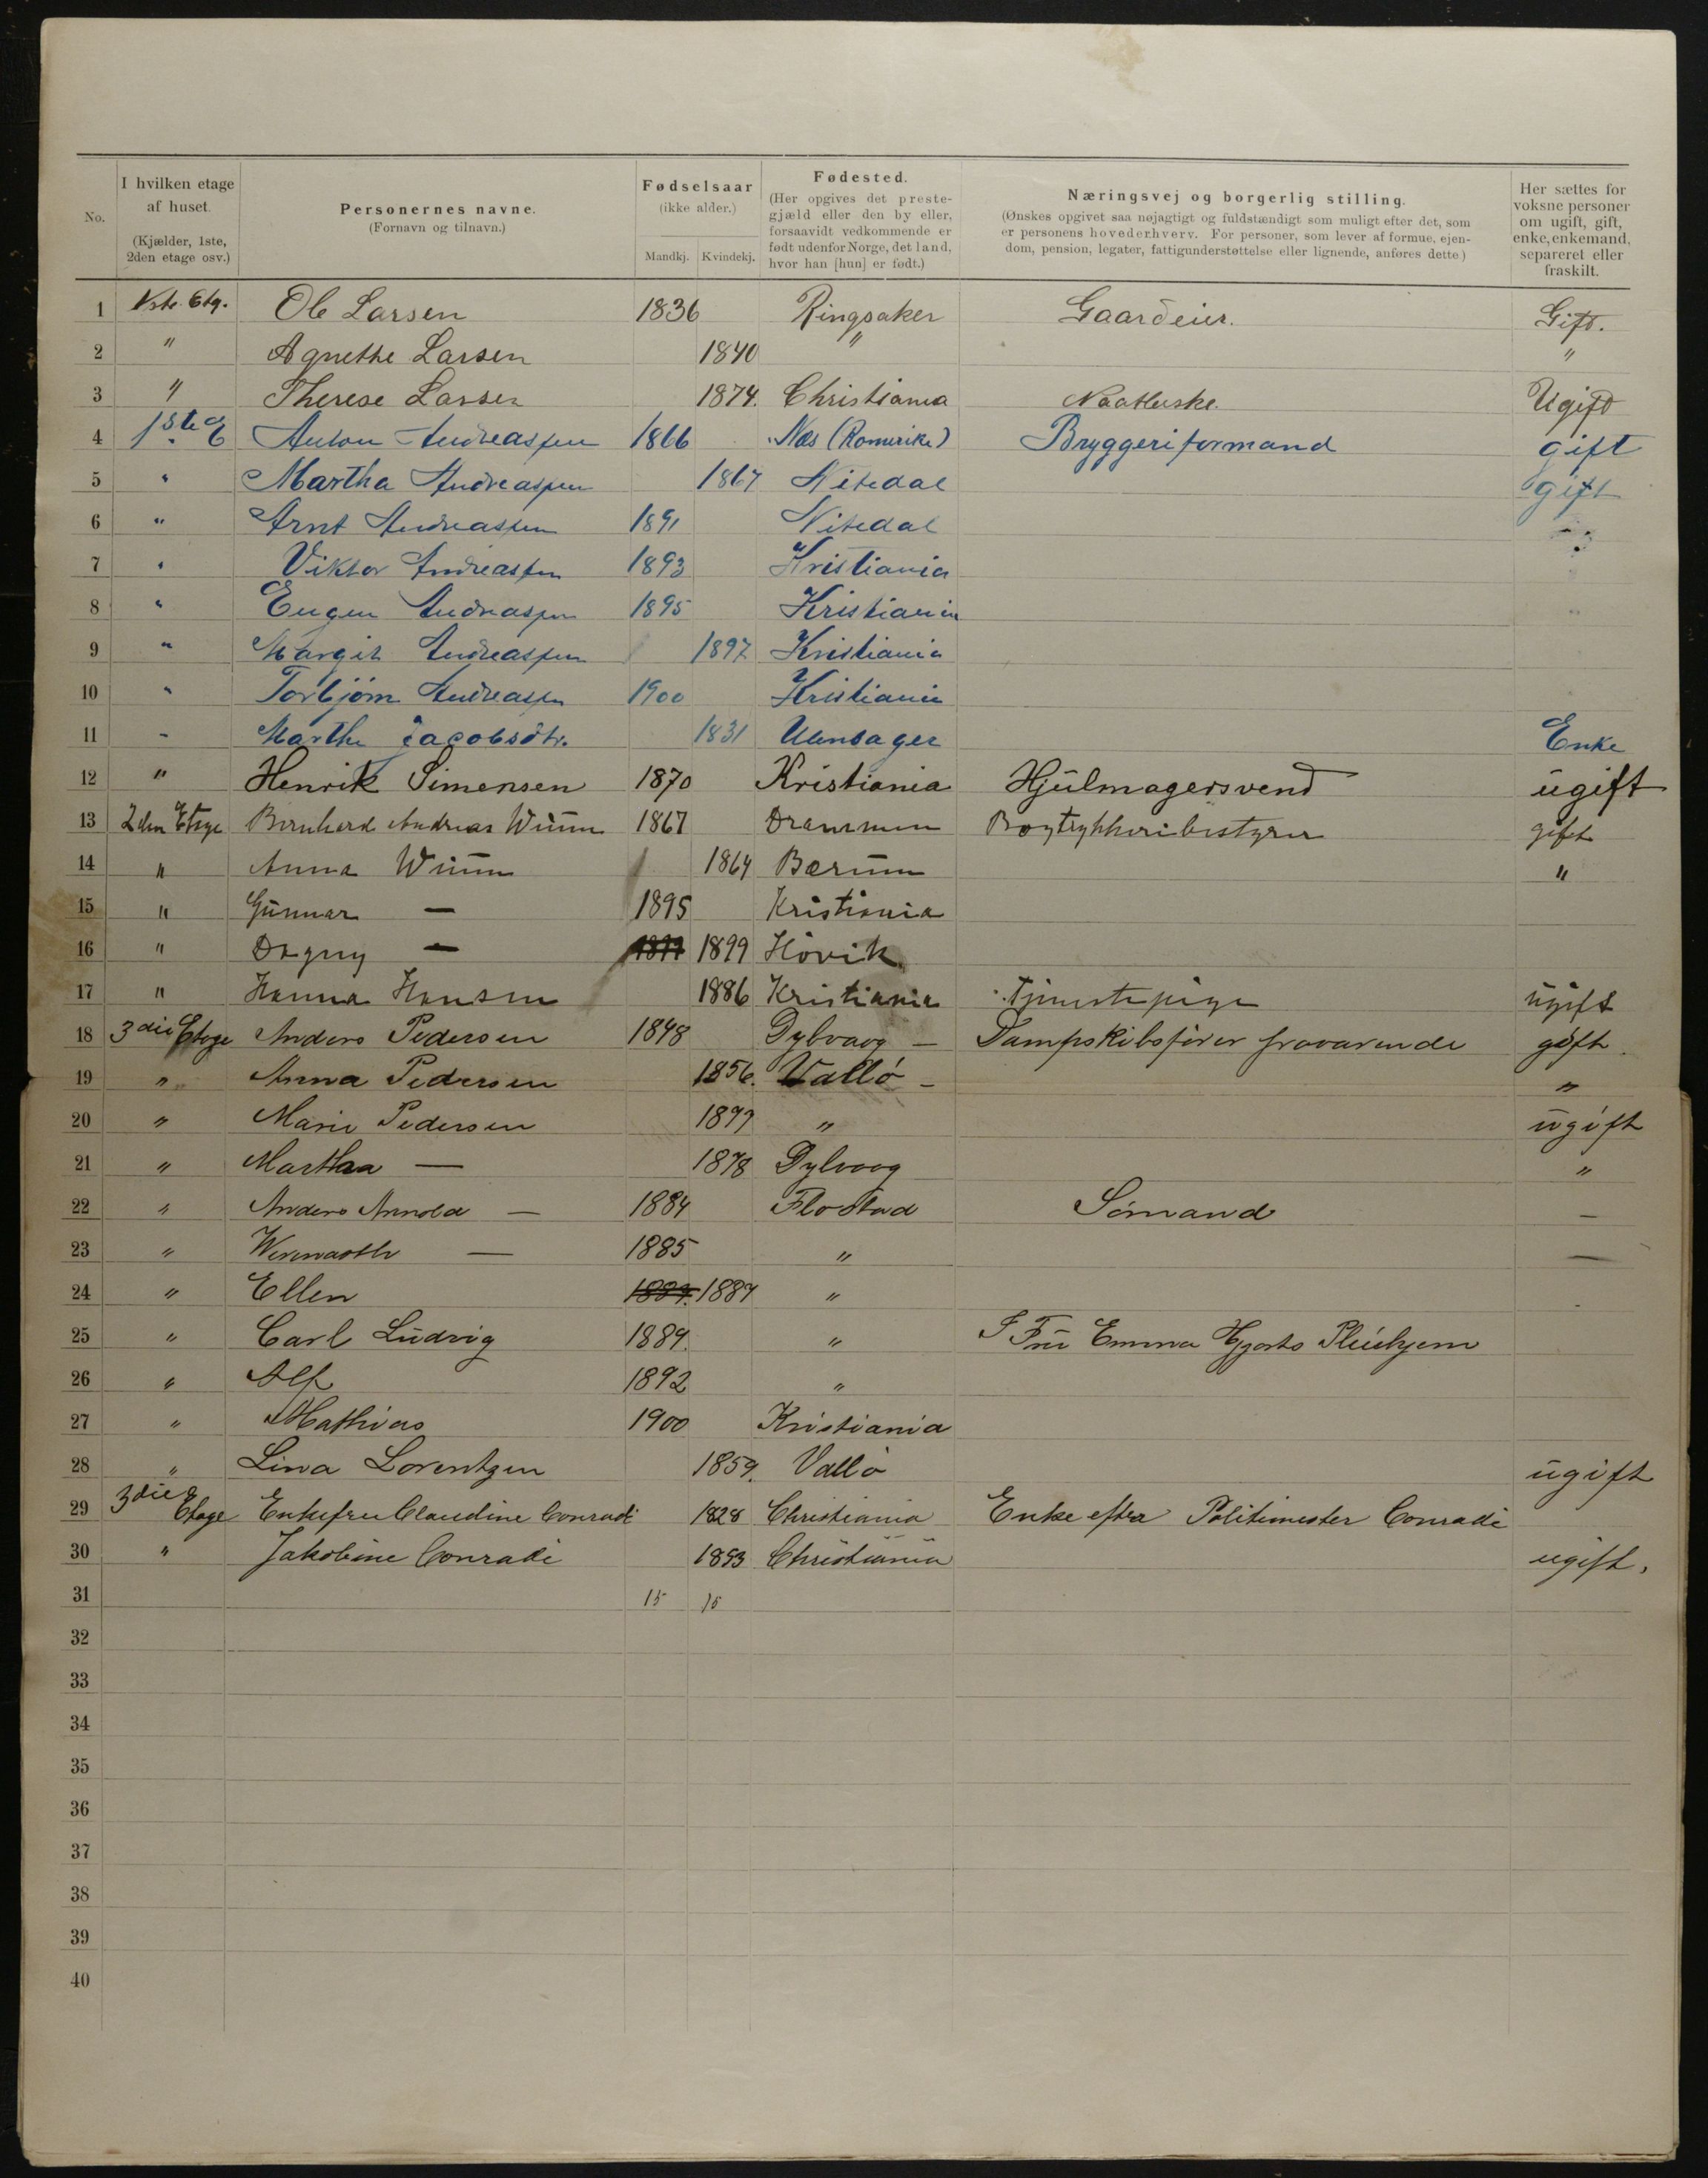 No.
I hvilken etage af huset. (Kjælder, 1ste, 2den etage osv.)
Personernes navne. (Fornavn og tilnavn.)
Fødselsaar (ikke alder.) Mandkj. Kvindekj.
Fødested. (Her opgives det prestegjæld eller den by eller, forsaavidt vedkommende er født udenfor Norge, det land, hvor han [hun] er født.)
Næringsvej og borgerlig stilling. (Ønskes opgivet saa nøjagtigt og fuldstændigt som muligt efter det, som er personens hovederhverv. For personer, som lever af formue, ejendom, pension, legater, fattigunderstøttelse eller lignende, anføres dette)
Her sættes for voksne personer om ugift, gift, enke, enkemand, separeret eller fraskilt.
1 1ste Etg. Ole Larsen 1836 Ringsaker Gaardeier. Gift.
2 " Agnethe Larsen 1840 " "
3 " Therese Larsen 1874. Christiania Ugift
4 1ste E Anton Andreassen 1866 Næs (Romerike) Bryggeriformand gift
5 " Martha Andreassen 1867 Nitedal gift
6 " Arnt Andreassen 1891 Nitedal
7 " Viktor Andreassen 1893 Kristiania
8 " Eugen Andreassen 1895 Kristiania
9 " Margit Andreassen 1897 Kristiania
10 " Torbjørn Andreassen 1900 Kristiania
11 - Marthe Jacobsdtr. 1831 Ulensager Enke
12 " Henrik Simensen 1870 Kristiania Hjulmagersvend ugift
13 2den Etage Bernhard Andreas Wium 1867 Drammen Bogtrykkeribestyrer gift
14 " Anna Wium 1864 Bærum "
15 " Gunnar — 1895 Kristiania
16 " Dagny — 1899 Høvik.
17 " Hanna Hansen 1886 Kristiania Tjenestepige ugift
18 3die Etage Anders Pedersen 1848 Dybvaag — Dampskibsfører fraværende gift.
19 " Anna Pedersen 1856. Vallø — "
20 " Marie Pedersen 1877 " ugift
21 " Marthea — 1878 Dybvaag "
22 " Anders Arnold — 1884 Flostad Sømand —
23 " — 1885 " —
24 " Ellen 1887. 1887 " -
25 " Carl Ludvig 1889. " I Fru Emma Hjorts Pleiehjem
26 " Alf 1892 "
27 " Mathias 1900 Kristiania
28 " Lina Lorentzen 1859. Vallø ugift
29 3die Etage Enkefru Claudine Conradi 1828 Christiania Enke efter Politimester Conradi
30 " Jakobine Conradi 1853 Christiania ugift.
31 15 15
32
33
34
35
36
37
38
39
40